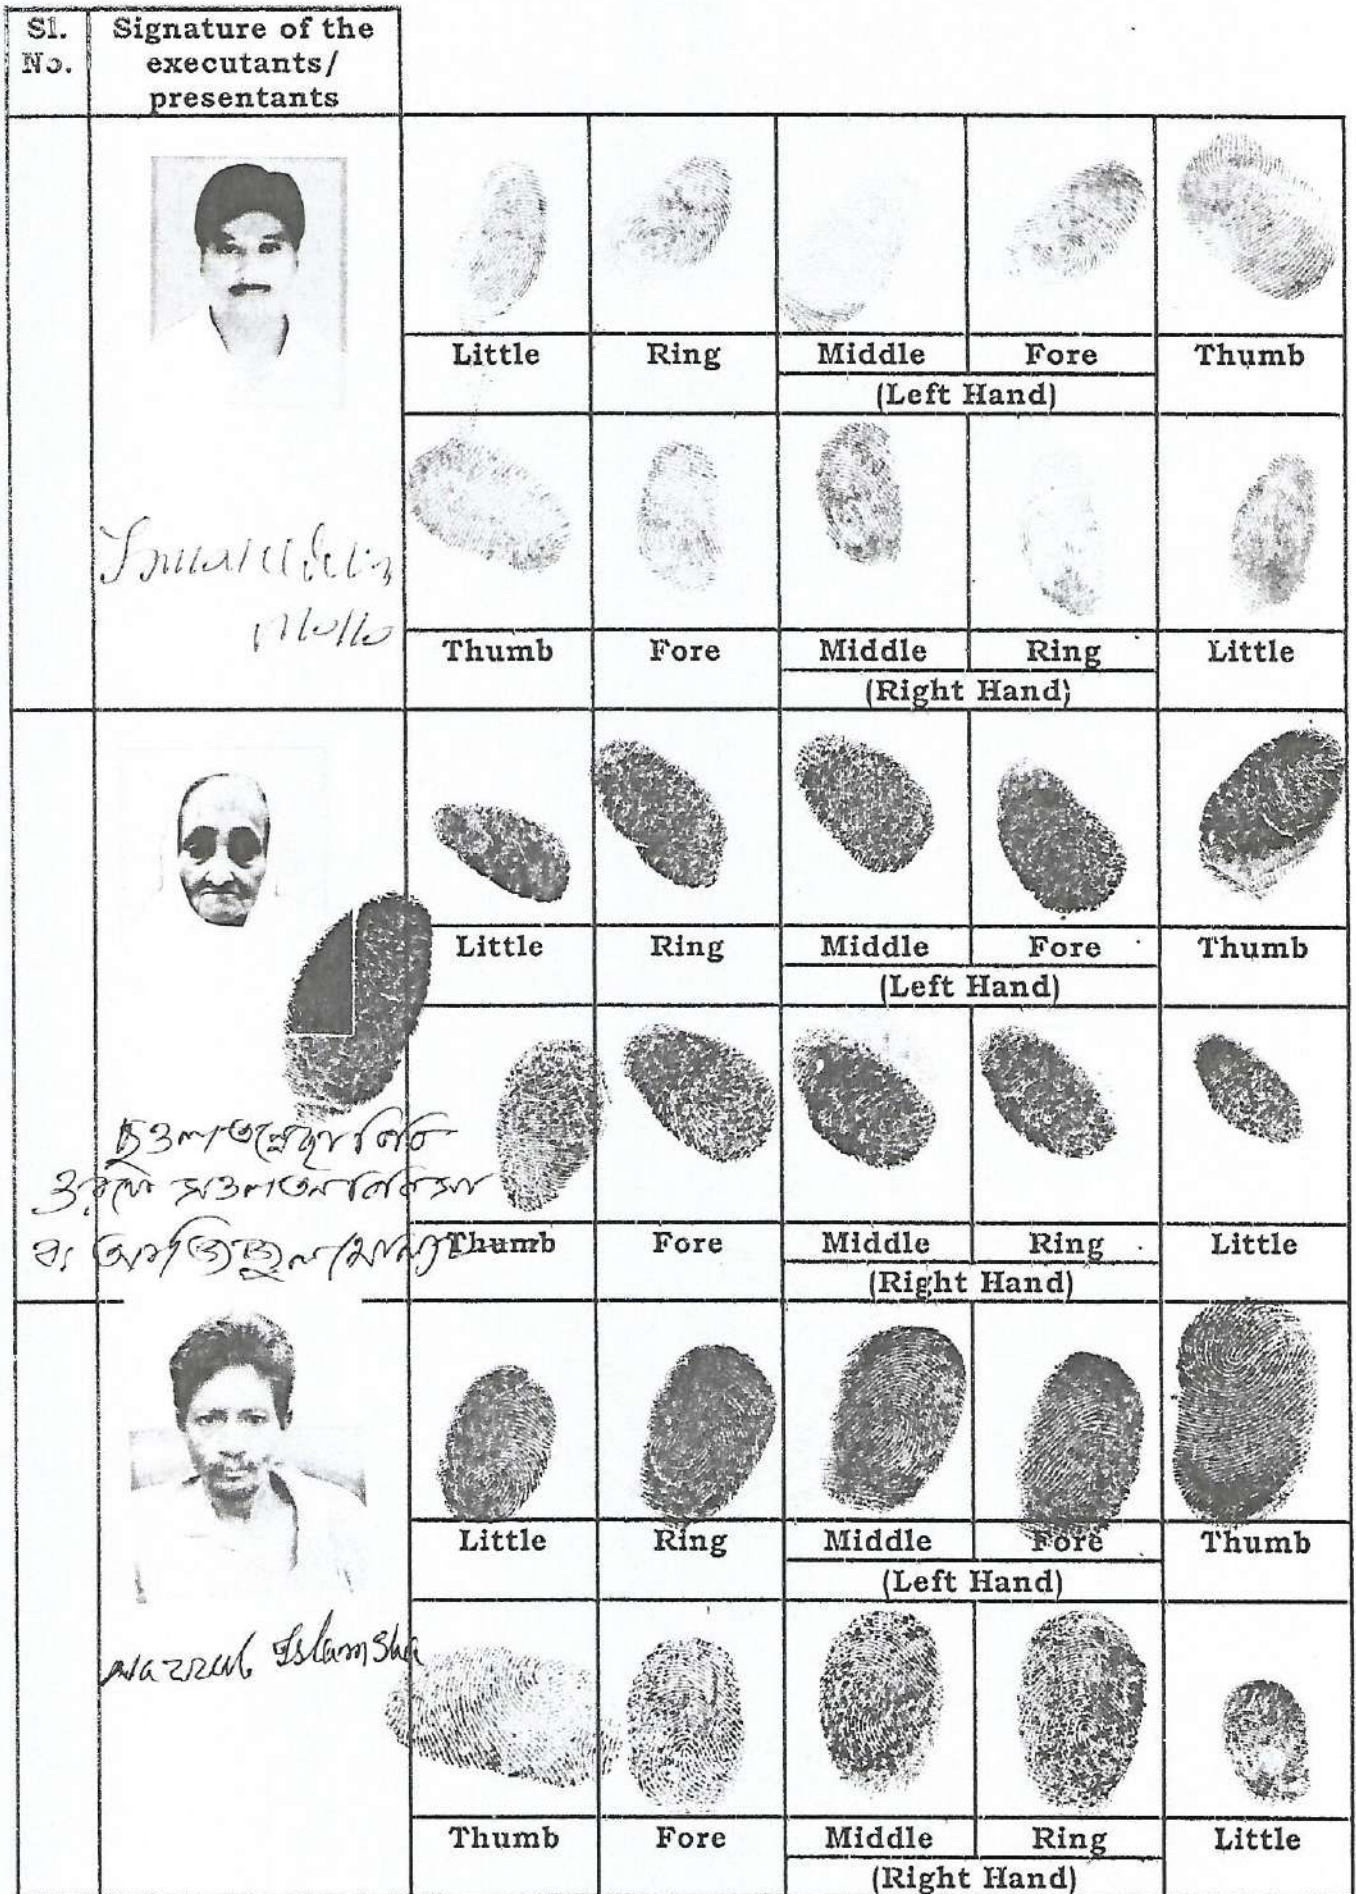 Sl. No.
Signature of the executants/ presentants
Little Ring Middle Fore Thumb
(Left Hand)
Thumb Fore Middle Ring Little
(Right Hand)
Little Ring Middle Fore Thumb
(Left Hand)
Thumb Fore Middle Ring Little
(Right Hand)
Little Ring Middle Fore Thumb
(Left Hand)
Nazrul Islam
Thumb Fore Middle Ring Little
(Right Hand)